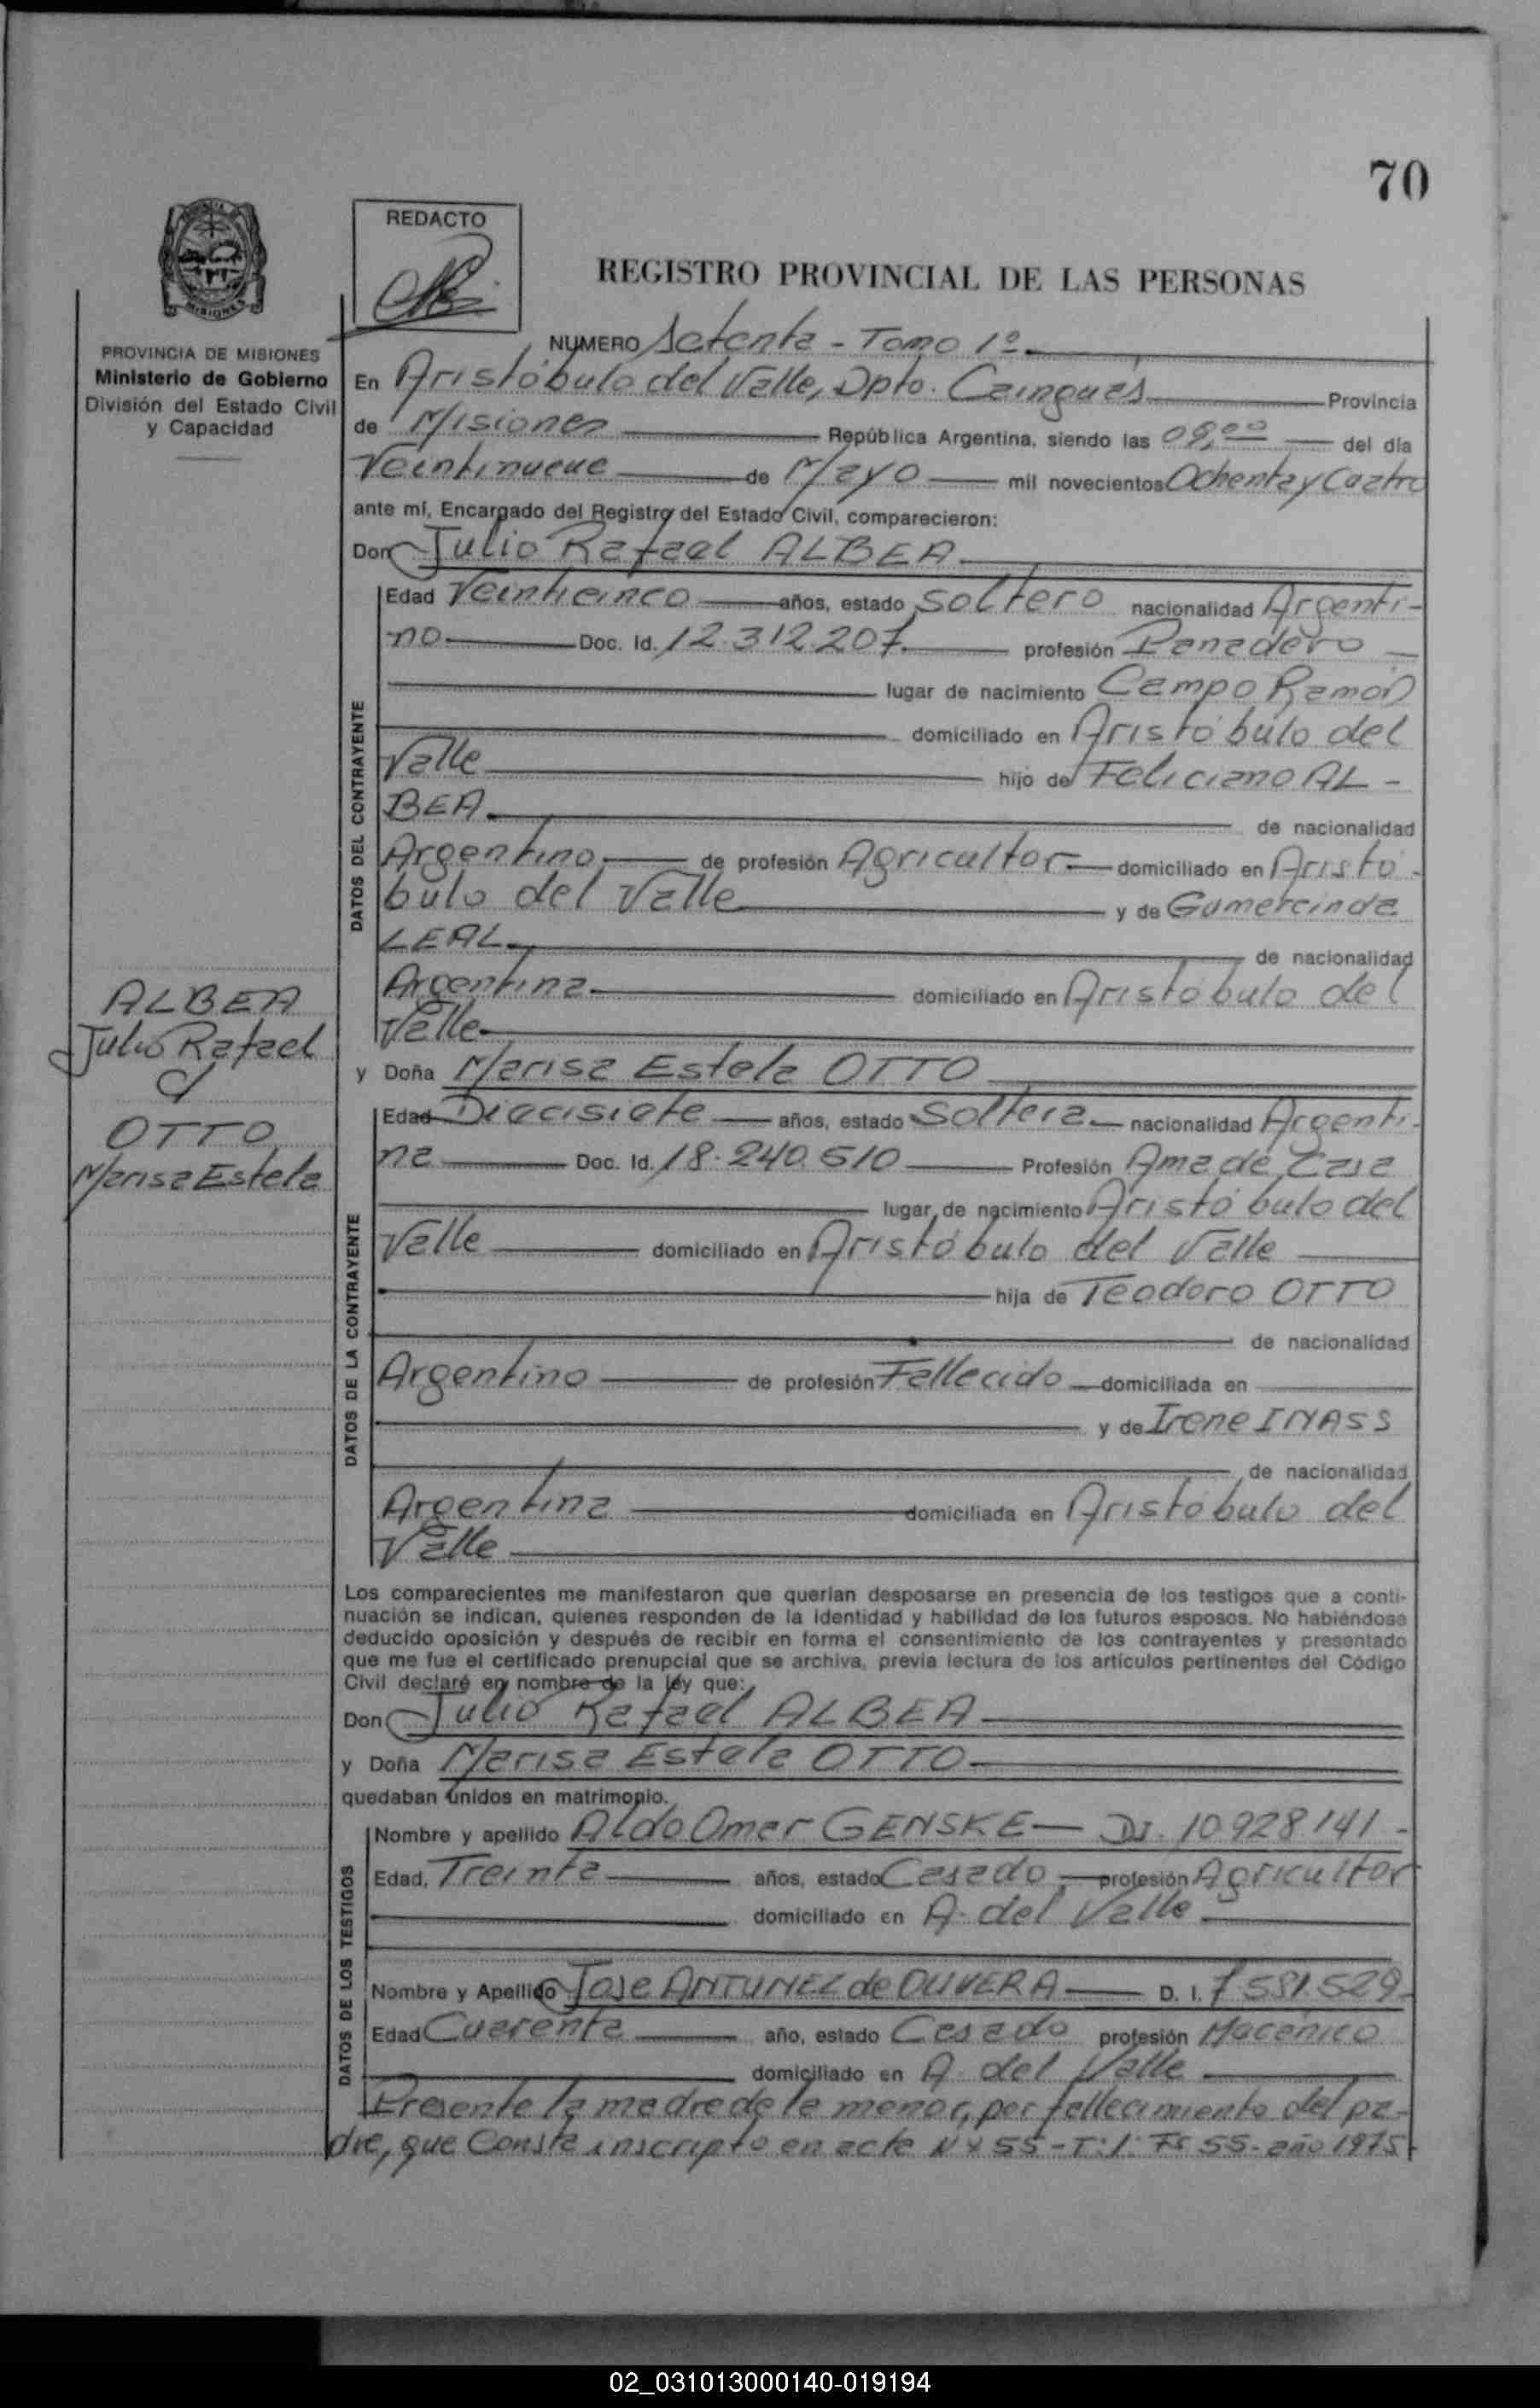 70
REDACTO
REGISTRO PROVINCIAL DE LAS PERSONAS
MISIONES
PROVINCIA DE MISIONES
Ministerio de Gobierno
División del Estado Civil
y Capacidad
NUMERO Setenta - Tomo 1º
En Aristóbulo del Valle, Dpto. Cainguás Provincia
de Misiones República Argentina, siendo las 09,00 del día
Veintinueve de Mayo mil novecientos Ochenta y Cuatro
ante mí, Encargado del Registro del Estado Civil, comparecieron:
Don Julio Rafael ALBEA
DATOS DEL CONTRAYENTE
Edad Veinticinco años, estado Soltero nacionalidad Argenti-
no Doc. Id. 12.312.207 profesión Panadero
lugar de nacimiento Campo Ramón
domiciliado en Aristóbulo del
Valle hijo de Feliciano AL-
BEA. de nacionalidad
Argentino, de profesión Agricultor domiciliado en Aristó-
bulo del Valle y de Gumercinda
LEAL de nacionalidad
Argentina domiciliado en Aristóbulo del
Valle
ALBEA
Julio Rafael
c/
OTTO
Marisa Estela
y Doña Marisa Estela OTTO
DATOS DE LA CONTRAYENTE
Edad Diecisiete años, estado Soltera nacionalidad Argenti-
na Doc. Id. 18.240.510 Profesión Ama de Casa
lugar de nacimiento Aristóbulo del
Valle domiciliado en Aristóbulo del Valle
hija de Teodoro OTTO
de nacionalidad
Argentino de profesión Fallecido domiciliada en
y de Irene INASS
de nacionalidad
Argentina domiciliada en Aristóbulo del
Valle
Los comparecientes me manifestaron que querían desposarse en presencia de los testigos que a conti-
nuación se indican, quienes responden de la identidad y habilidad de los futuros esposos. No habiéndose
deducido oposición y después de recibir en forma el consentimiento de los contrayentes y presentado
que me fue el certificado prenupcial que se archiva, previa lectura de los artículos pertinentes del Código
Civil declaré en nombre de la ley que:
Don Julio Rafael ALBEA
y Doña Marisa Estela OTTO
quedaban unidos en matrimonio.
DATOS DE LOS TESTIGOS
Nombre y apellido Aldo Omar GENSKE - DI. 10.928.141
Edad, Treinta años, estado Casado profesión Agricultor
domiciliado en A. del Valle
Nombre y Apellido Jose ANTUNEZ de OLIVERA D. I. 7.581.529
Edad Cuarenta año, estado Casado profesión Macenico
domiciliado en A. del Valle
Presente la madre de la menor, por fallecimiento del pa-
dre, que Consta inscripto en acta Nº 55 - T: 1: Fº 55 - año 1975
02_031013000140-019194